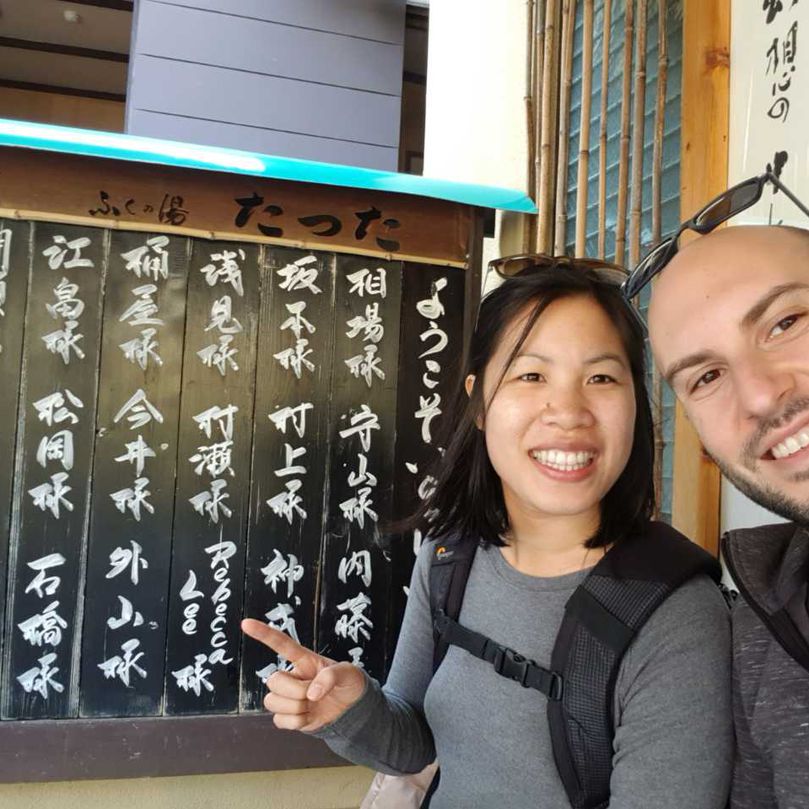 ふくの湯 たつた
想の
ようこそ
相場様 守山様 内藤
坂本様 村上様 神
浅見様 村瀬様 Rebecca Lee 様
桶屋様 今井様 外山様
江畠様 松岡様 石橋様